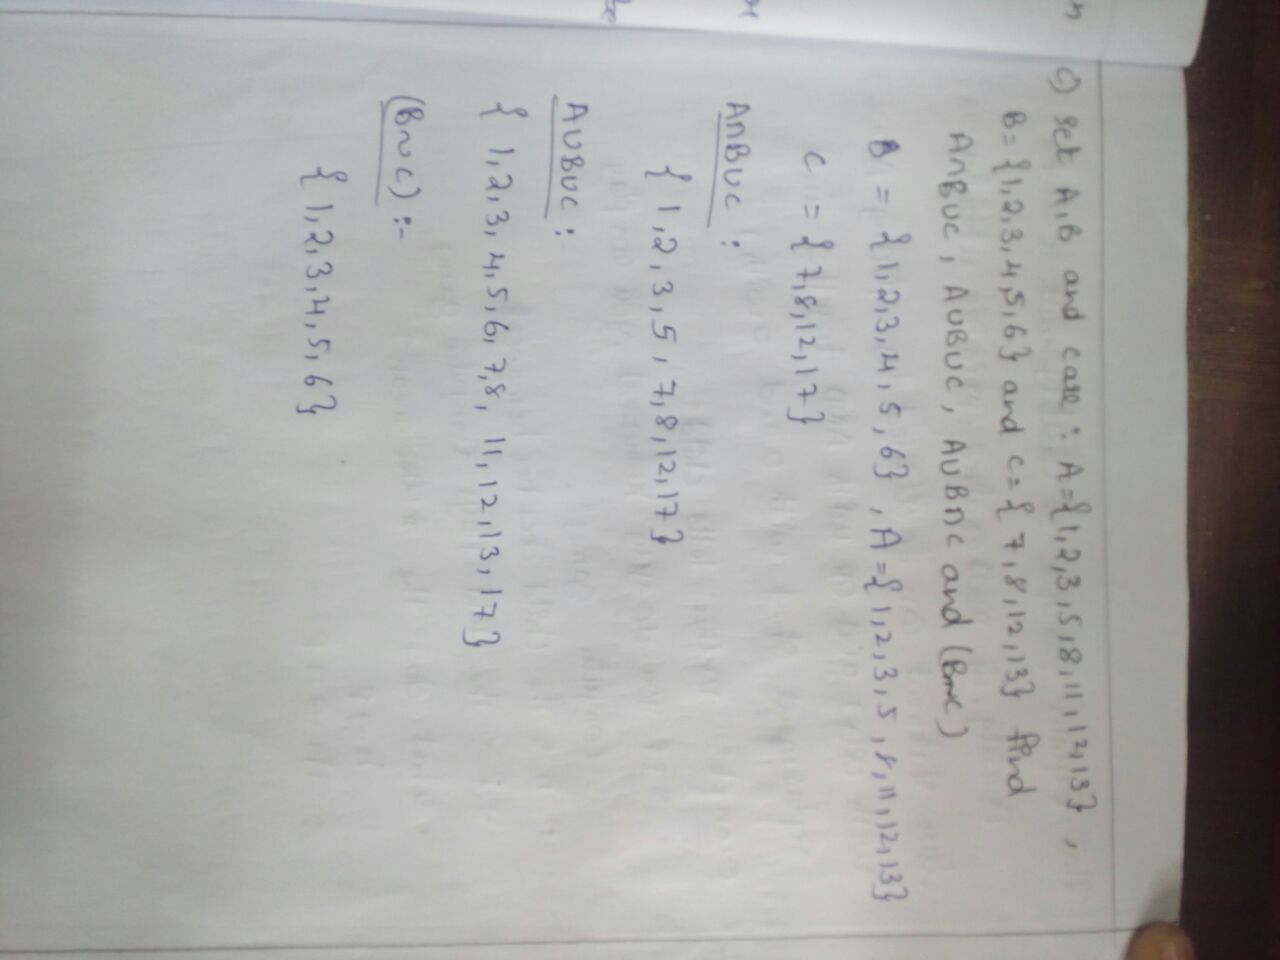 c) Set A,B and care : A={1,2,3,5,8,11,12,13},
B={1,2,3,4,5,6} and c={7,8,12,13} find
A∩B∪C, A∪B∪C, A∪B∩C and (B~C)
B = {1,2,3,4,5,6}, A={1,2,3,5,8,11,12,13}
C = {7,8,12,17}
A∩B∪C :
{1,2,3,5,7,8,12,17}
A∪B∪C :
{1,2,3,4,5,6,7,8,11,12,13,17}
(B~C) :-
{1,2,3,4,5,6}